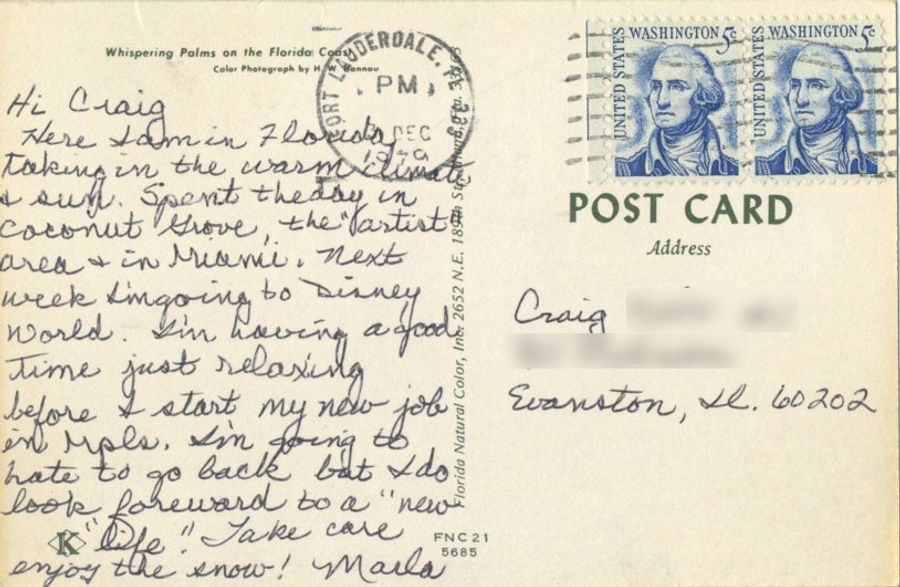 Whispering Palms on the Florida Coast
Color Photograph by H. W. Hannau
Hi Craig
Here I am in Florida
taking in the warm climate
& sun. Spent the day in
Coconut Grove, the "artist"
area & in Miami. Next
week I'm going to Disney
World. I'm having a good
time just relaxing
before I start my new job
in Mpls. I'm going to
hate to go back but I do
look foreward to a "new
"life". Take care
enjoy the snow! Marla
K
FNC 21
5685
Florida Natural Color, Inc. 2652 N.E. 189th St.
FORT LAUDERDALE, FL 333
PM
DEC
1979
UNITED STATES WASHINGTON 5c
UNITED STATES WASHINGTON 5c
POST CARD
Address
Craig
Evanston, Il. 60202